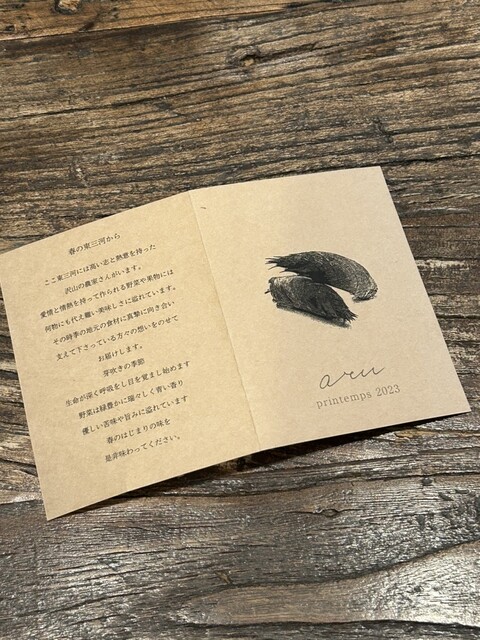 春の東三河から
ここ東三河には高い志と熱意を持った
沢山の農家さんがいます。
愛情と情熱を持って作られる野菜や果物には
何物にも代え難い美味しさに溢れています。
その時季の地元の食材に真摯に向き合い
支えて下さっている方々の想いをのせて
お届けします。
芽吹きの季節
生命が深く呼吸をし目を覚まし始めます
野菜は緑豊かに瑞々しく青い香り
優しい苦味や旨みに溢れています
春のはじまりの味を
是非味わってください。
aru
printemps 2023